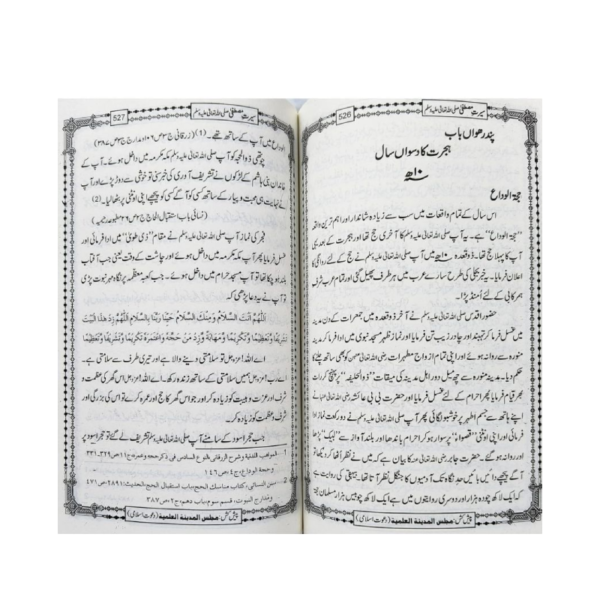 526
سیرتِ مصطفیٰ صلی اللہ تعالیٰ علیہ وسلم
پندرھواں باب
ہجرت کا دسواں سال
۱۰ھ
حجۃ الوداع
اس سال کے تمام واقعات میں سب سے زیادہ شاندار اور اہم ترین واقعہ
”حجۃ الوداع“ ہے۔ یہ آپ صلی اللہ تعالیٰ علیہ وسلم کا آخری حج تھا اور ہجرت کے بعد یہی
آپ کا پہلا حج تھا۔ ذوقعدہ ۱۰ھ میں آپ صلی اللہ تعالیٰ علیہ وسلم نے حج کے لئے روانگی کا
اعلان فرمایا۔ یہ خبر بجلی کی طرح سارے عرب میں ہر طرف پھیل گئی اور تمام عرب شرف
ہمرکابی کے لئے اُمنڈ پڑا۔
حضور اقدس صلی اللہ تعالیٰ علیہ وسلم نے آخر ذوقعدہ میں جمعرات کے دن مدینہ
میں غسل فرما کر تہبند اور چادر زیب تن فرمایا اور نماز ظہر مسجد نبوی میں ادا فرما کر مدینہ
منورہ سے روانہ ہوئے اور اپنی تمام ازواج مطہرات رضی اللہ تعالیٰ عنہن کو بھی ساتھ چلنے کا
حکم دیا۔ مدینہ منورہ سے چھ میل دور اہل مدینہ کی میقات ”ذوالحلیفہ“ پر پہنچ کر رات
بھر قیام فرمایا پھر احرام کے لئے غسل فرمایا اور حضرت بی بی عائشہ رضی اللہ تعالیٰ عنہا نے
اپنے ہاتھ سے جسم اطہر پر خوشبو لگائی پھر آپ صلی اللہ تعالیٰ علیہ وسلم نے دو رکعت نماز ادا
فرمائی اور اپنی اونٹنی ”قصواء“ پر سوار ہو کر احرام باندھا اور بلند آواز سے ”لبیک“ پڑھا
اور روانہ ہو گئے۔ حضرت جابر رضی اللہ تعالیٰ عنہ کا بیان ہے کہ میں نے نظر اٹھا کر دیکھا تو
آگے پیچھے دائیں بائیں حد نگاہ تک آدمیوں کا جنگل نظر آتا تھا۔ بیہقی کی روایت ہے
کہ ایک لاکھ چودہ ہزار اور دوسری روایتوں میں ہے ایک لاکھ چوبیس ہزار مسلمان
پیش کش: مجلس المدینۃ العلمیۃ (دعوتِ اسلامی)
سیرتِ مصطفیٰ صلی اللہ تعالیٰ علیہ وسلم
527
الوداع میں آپ کے ساتھ تھے۔ (۱) (زرقانی ج۳ ص۱۰۶ و مدارج ج۲ ص۳۸۷)
چوتھی ذوالحجہ کو آپ صلی اللہ تعالیٰ علیہ وسلم مکہ مکرمہ میں داخل ہوئے۔ آپ کے
خاندان بنی ہاشم کے لڑکوں نے تشریف آوری کی خبر سنی تو خوشی سے دوڑ پڑے اور آپ
نے نہایت ہی محبت و پیار کے ساتھ کسی کو آگے کسی کو پیچھے اپنی اونٹنی پر بٹھا لیا۔ (2)
(نسائی باب استقبال الحاج ج۲ ص۲۶ مطبوعہ رحیمیہ)
فجر کی نماز آپ صلی اللہ تعالیٰ علیہ وسلم نے مقام ”ذی طویٰ“ میں ادا فرمائی اور
غسل فرمایا پھر آپ مکہ مکرمہ میں داخل ہوئے اور چاشت کے وقت یعنی جب آفتاب
بلند ہو چکا تھا تو آپ مسجد حرام میں داخل ہوئے۔ جب کعبہ معظمہ پر نگاہ مہر نبوت پڑی
تو آپ نے یہ دعا پڑھی کہ
اَللّٰهُمَّ اَنْتَ السَّلَامُ وَمِنْكَ السَّلَامُ حَيِّنَا رَبَّنَا بِالسَّلَامِ اَللّٰهُمَّ زِدْ هٰذَا الْبَيْتَ
تَشْرِيْفًا وَّتَعْظِيْمًا وَّتَكْرِيْمًا وَّمَهَابَةً وَّزِدْ مَنْ حَجَّهُ وَاعْتَمَرَهُ تَكْرِيْمًا وَّتَشْرِيْفًا وَّتَعْظِيْمًا
اے اللہ! عزوجل تو سلامتی دینے والا ہے اور تیری طرف سے سلامتی ہے۔
اے رب! عزوجل ہمیں سلامتی کے ساتھ زندہ رکھ۔ اے اللہ! عزوجل اس گھر کی عظمت و
شرف اور عزت و ہیبت کو زیادہ کر اور جو اس گھر کا حج اور عمرہ کرے تو اس کی بزرگی اور
شرف و عظمت کو زیادہ کر۔
جب حجر اسود کے سامنے آپ صلی اللہ تعالیٰ علیہ وسلم تشریف لے گئے تو حجر اسود پر
المواهب اللدنية وشرح الزرقانى، النوع السادس فى ذكر حجه وعمره، ج۱۱، ص۳۲۹، ۳۳۱
وحجة الوداع، ج٤، ص١٤٦
2 سنن النسائى، كتاب مناسك الحج، باب استقبال الحج، الحديث: ۲۸۹۱، ص٤٧١
ومدارج النبوت، قسم سوم، باب دهم، ج۲، ص۳۸۷
پیش کش: مجلس المدینۃ العلمیۃ (دعوتِ اسلامی)